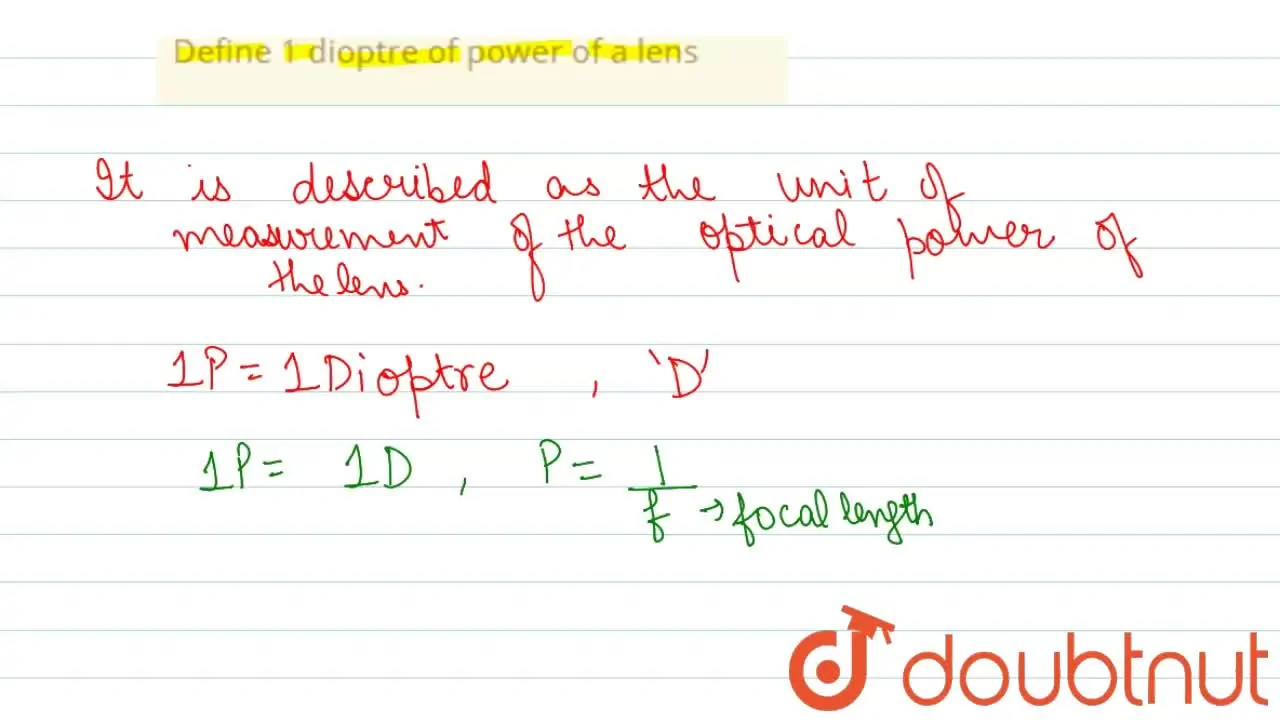 Define 1 dioptre of power of a lens
It is described as the unit of
measurement of the optical power of
the lens.
1P = 1Dioptre , 'D'
1P = 1D , P = 1/f → focal length
doubtnut